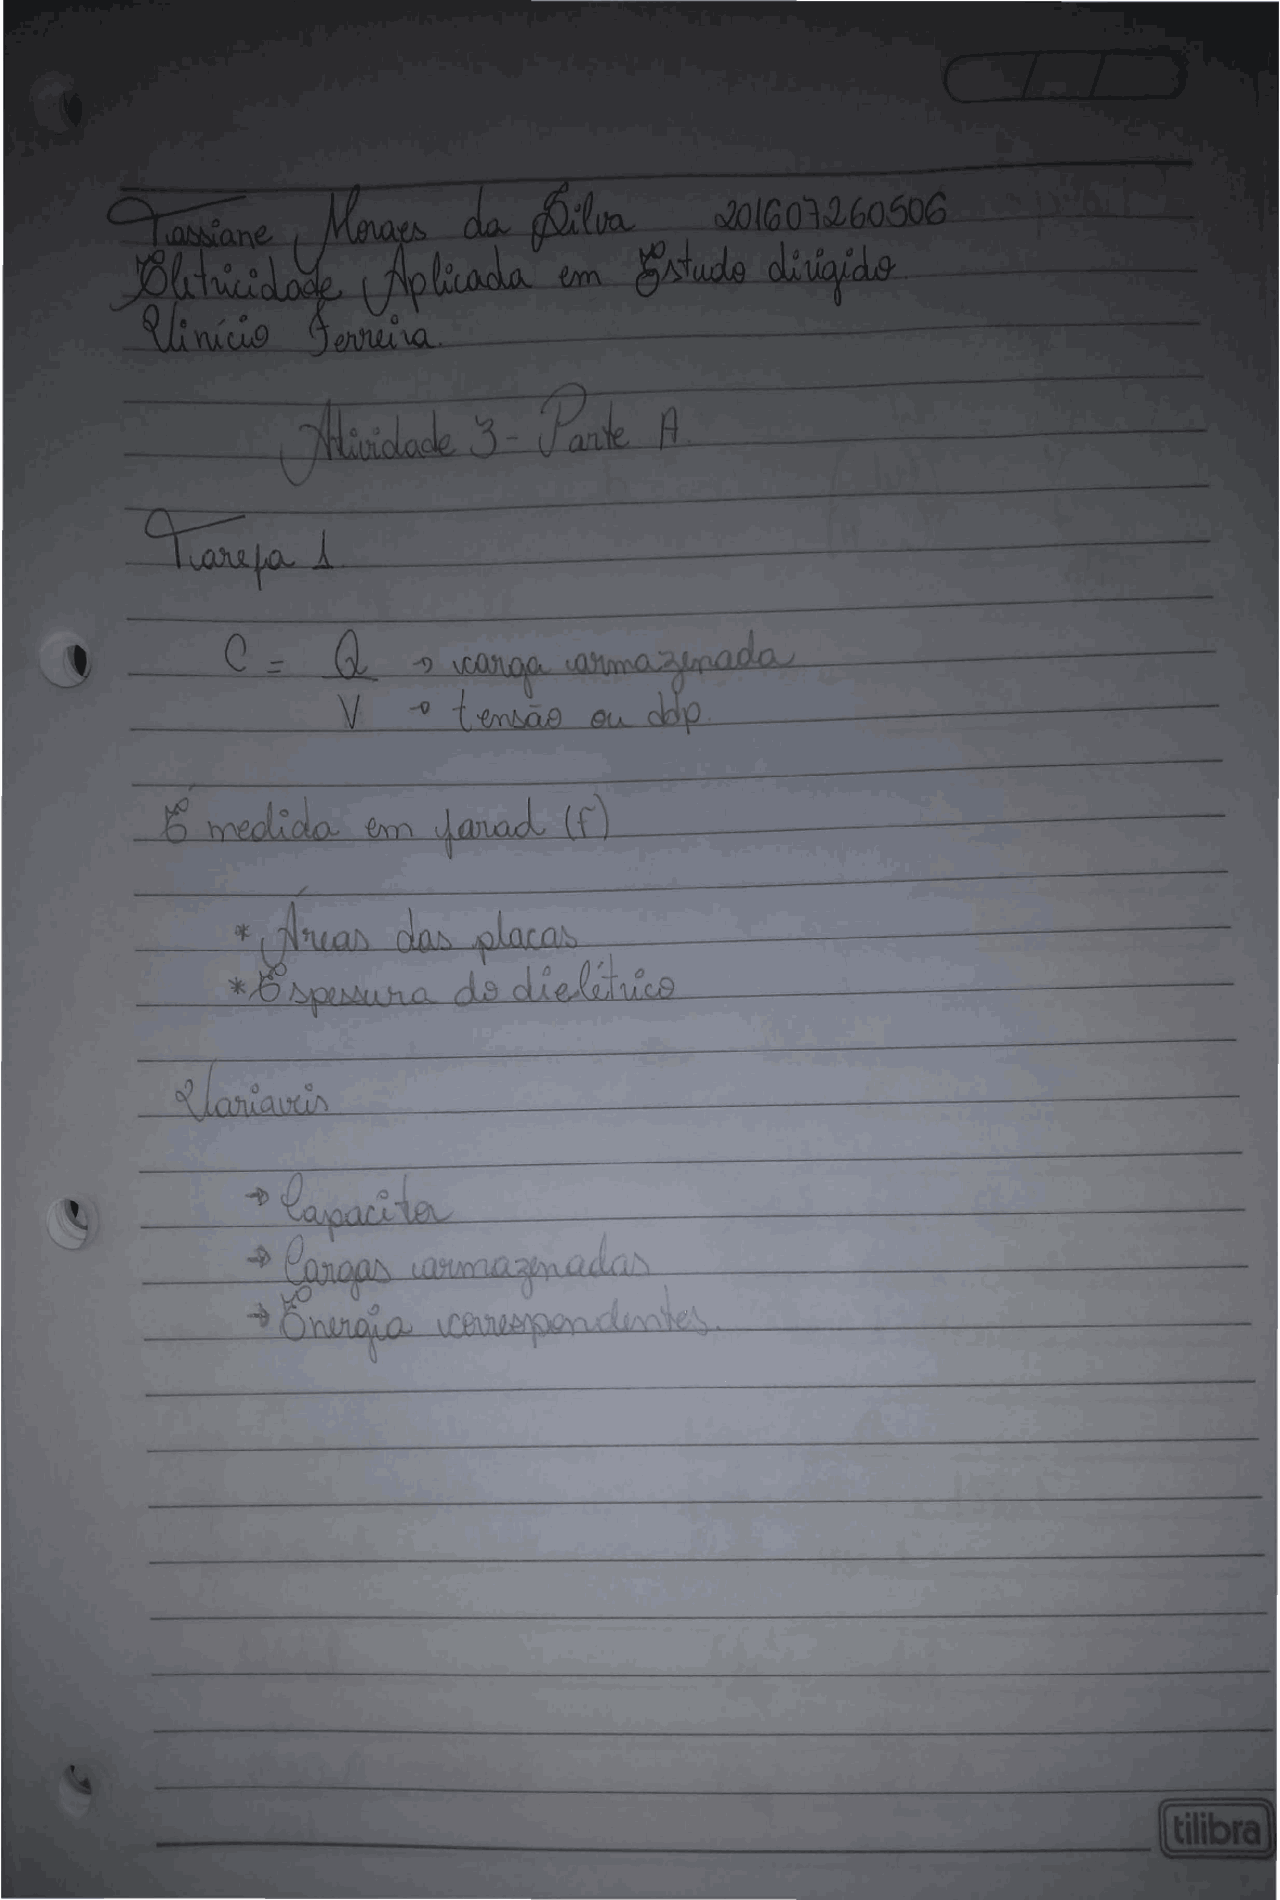 Tassiane Moraes da Silva 201607260506
Eletricidade Aplicada em Estudo dirigido
Vinício Ferreira.
Atividade 3 - Parte A.
Tarefa 1.
C = Q → carga armazenada
V → tensão ou ddp.
É medida em farad (f)
* Áreas das placas
* Espessura do dielétrico
Variaveis
→ Capacitor
→ Cargas armazenadas
→ Energia correspondentes.
tilibra